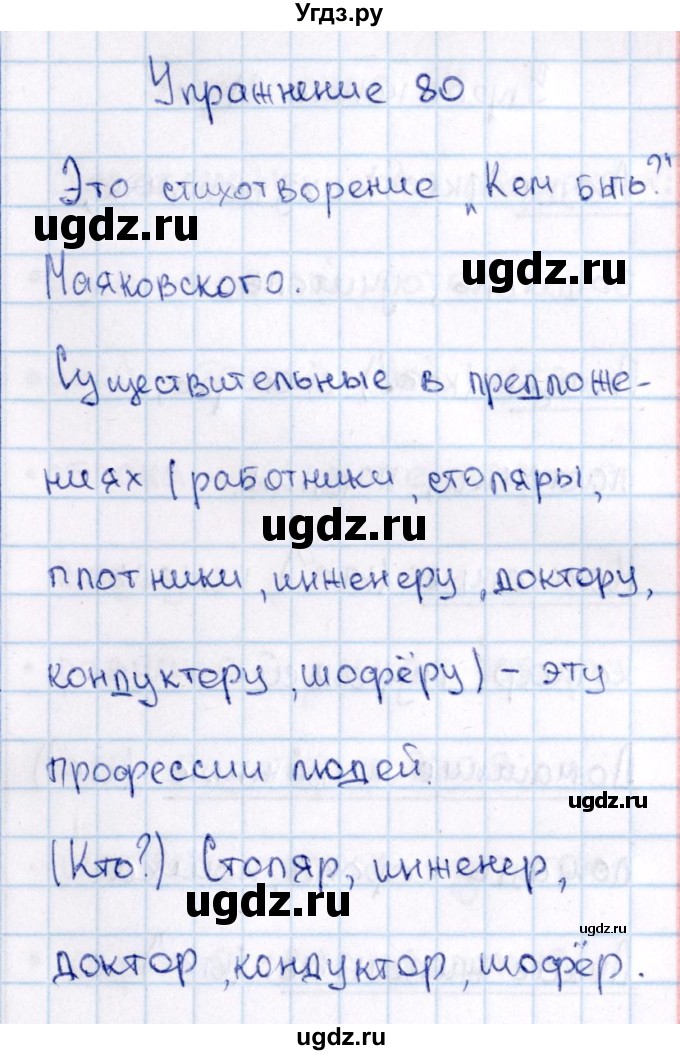 Угдз.ру
Упражнение 80
Это стихотворение „Кем быть?“
ugdz.ru
ugdz.ru
Маяковского.
Существительные в предложе-
ниях (работники, столяры,
ugdz.ru
плотники, инженеру, доктору,
кондуктору, шофёру) – эту
профессии людей.
ugdz.ru
(Кто?) Столяр, инженер,
ugdz.ru
доктор, кондуктор, шофёр.
ugdz.ru